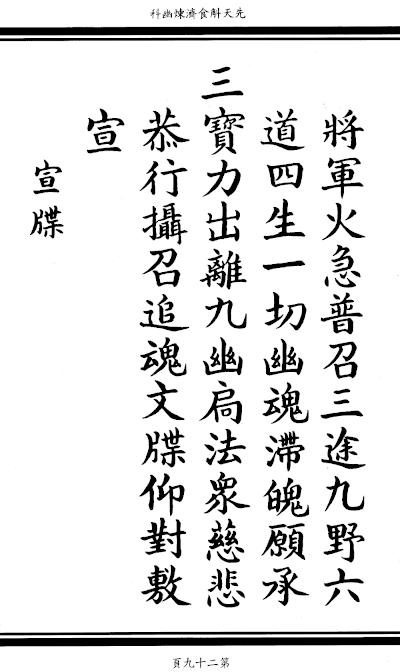 科幽煉濟食斛天先
將軍火急普召三途九野六
道四生一切幽魂滯魄願承
三寶力出離九幽扃法眾慈悲
恭行攝召追魂文牒仰對敷
宣
宣牒
頁九十二第